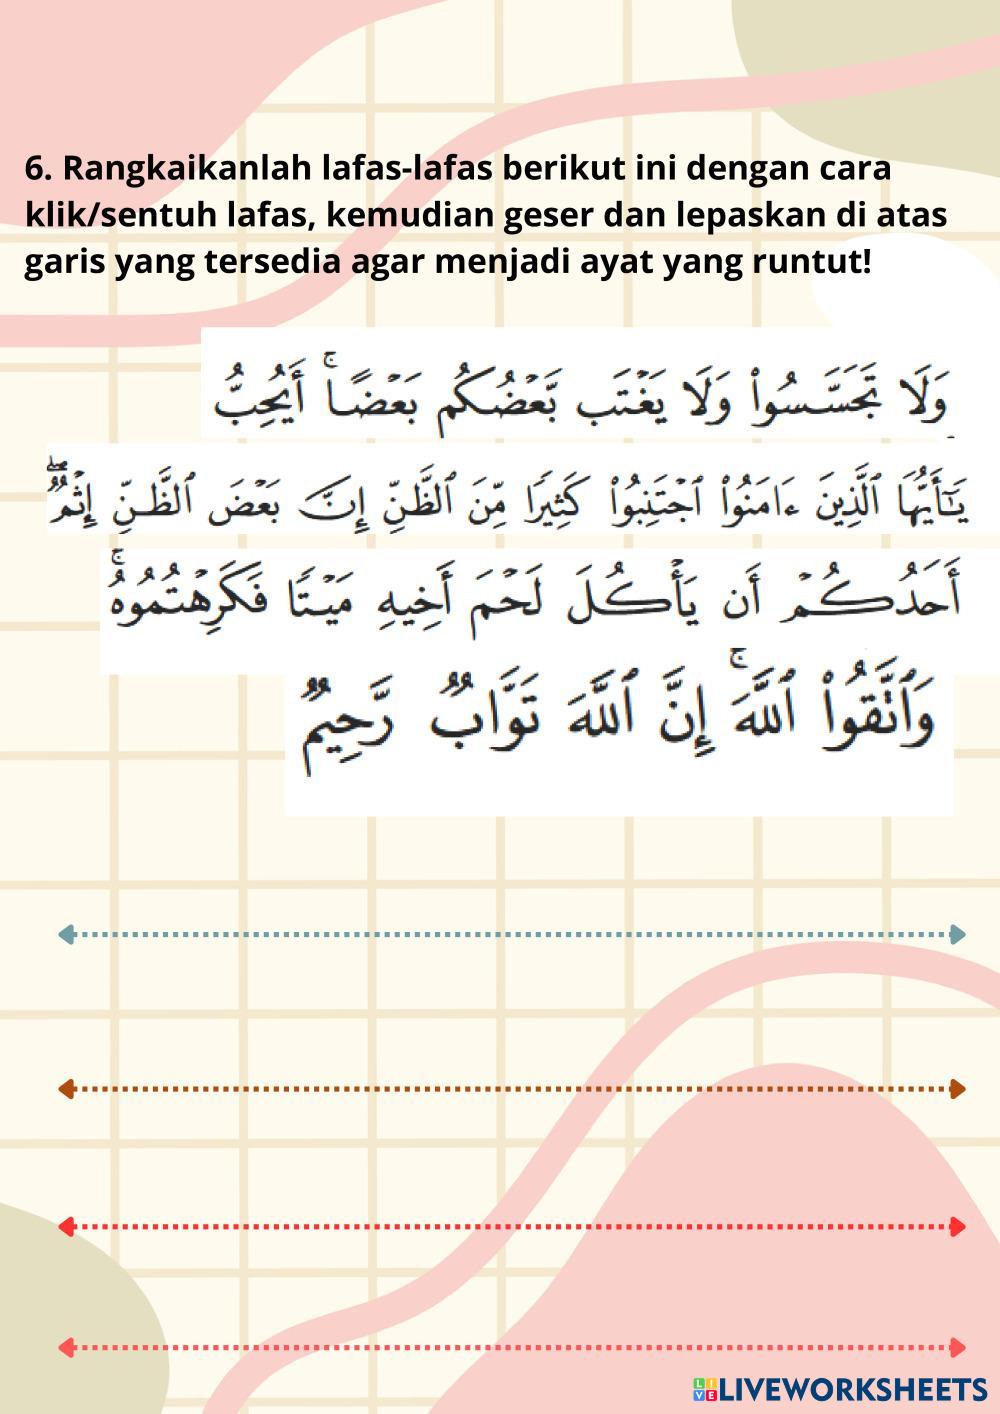 6. Rangkaikanlah lafas-lafas berikut ini dengan cara
klik/sentuh lafas, kemudian geser dan lepaskan di atas
garis yang tersedia agar menjadi ayat yang runtut!
وَلَا تَجَسَّسُوا۟ وَلَا يَغْتَب بَّعْضُكُم بَعْضًا ۚ أَيُحِبُّ
يَـٰٓأَيُّهَا ٱلَّذِينَ ءَامَنُوا۟ ٱجْتَنِبُوا۟ كَثِيرًا مِّنَ ٱلظَّنِّ إِنَّ بَعْضَ ٱلظَّنِّ إِثْمٌ ۖ
أَحَدُكُمْ أَن يَأْكُلَ لَحْمَ أَخِيهِ مَيْتًا فَكَرِهْتُمُوهُ ۚ
وَٱتَّقُوا۟ ٱللَّهَ ۚ إِنَّ ٱللَّهَ تَوَّابٌ رَّحِيمٌ
LIVE LIVEWORKSHEETS